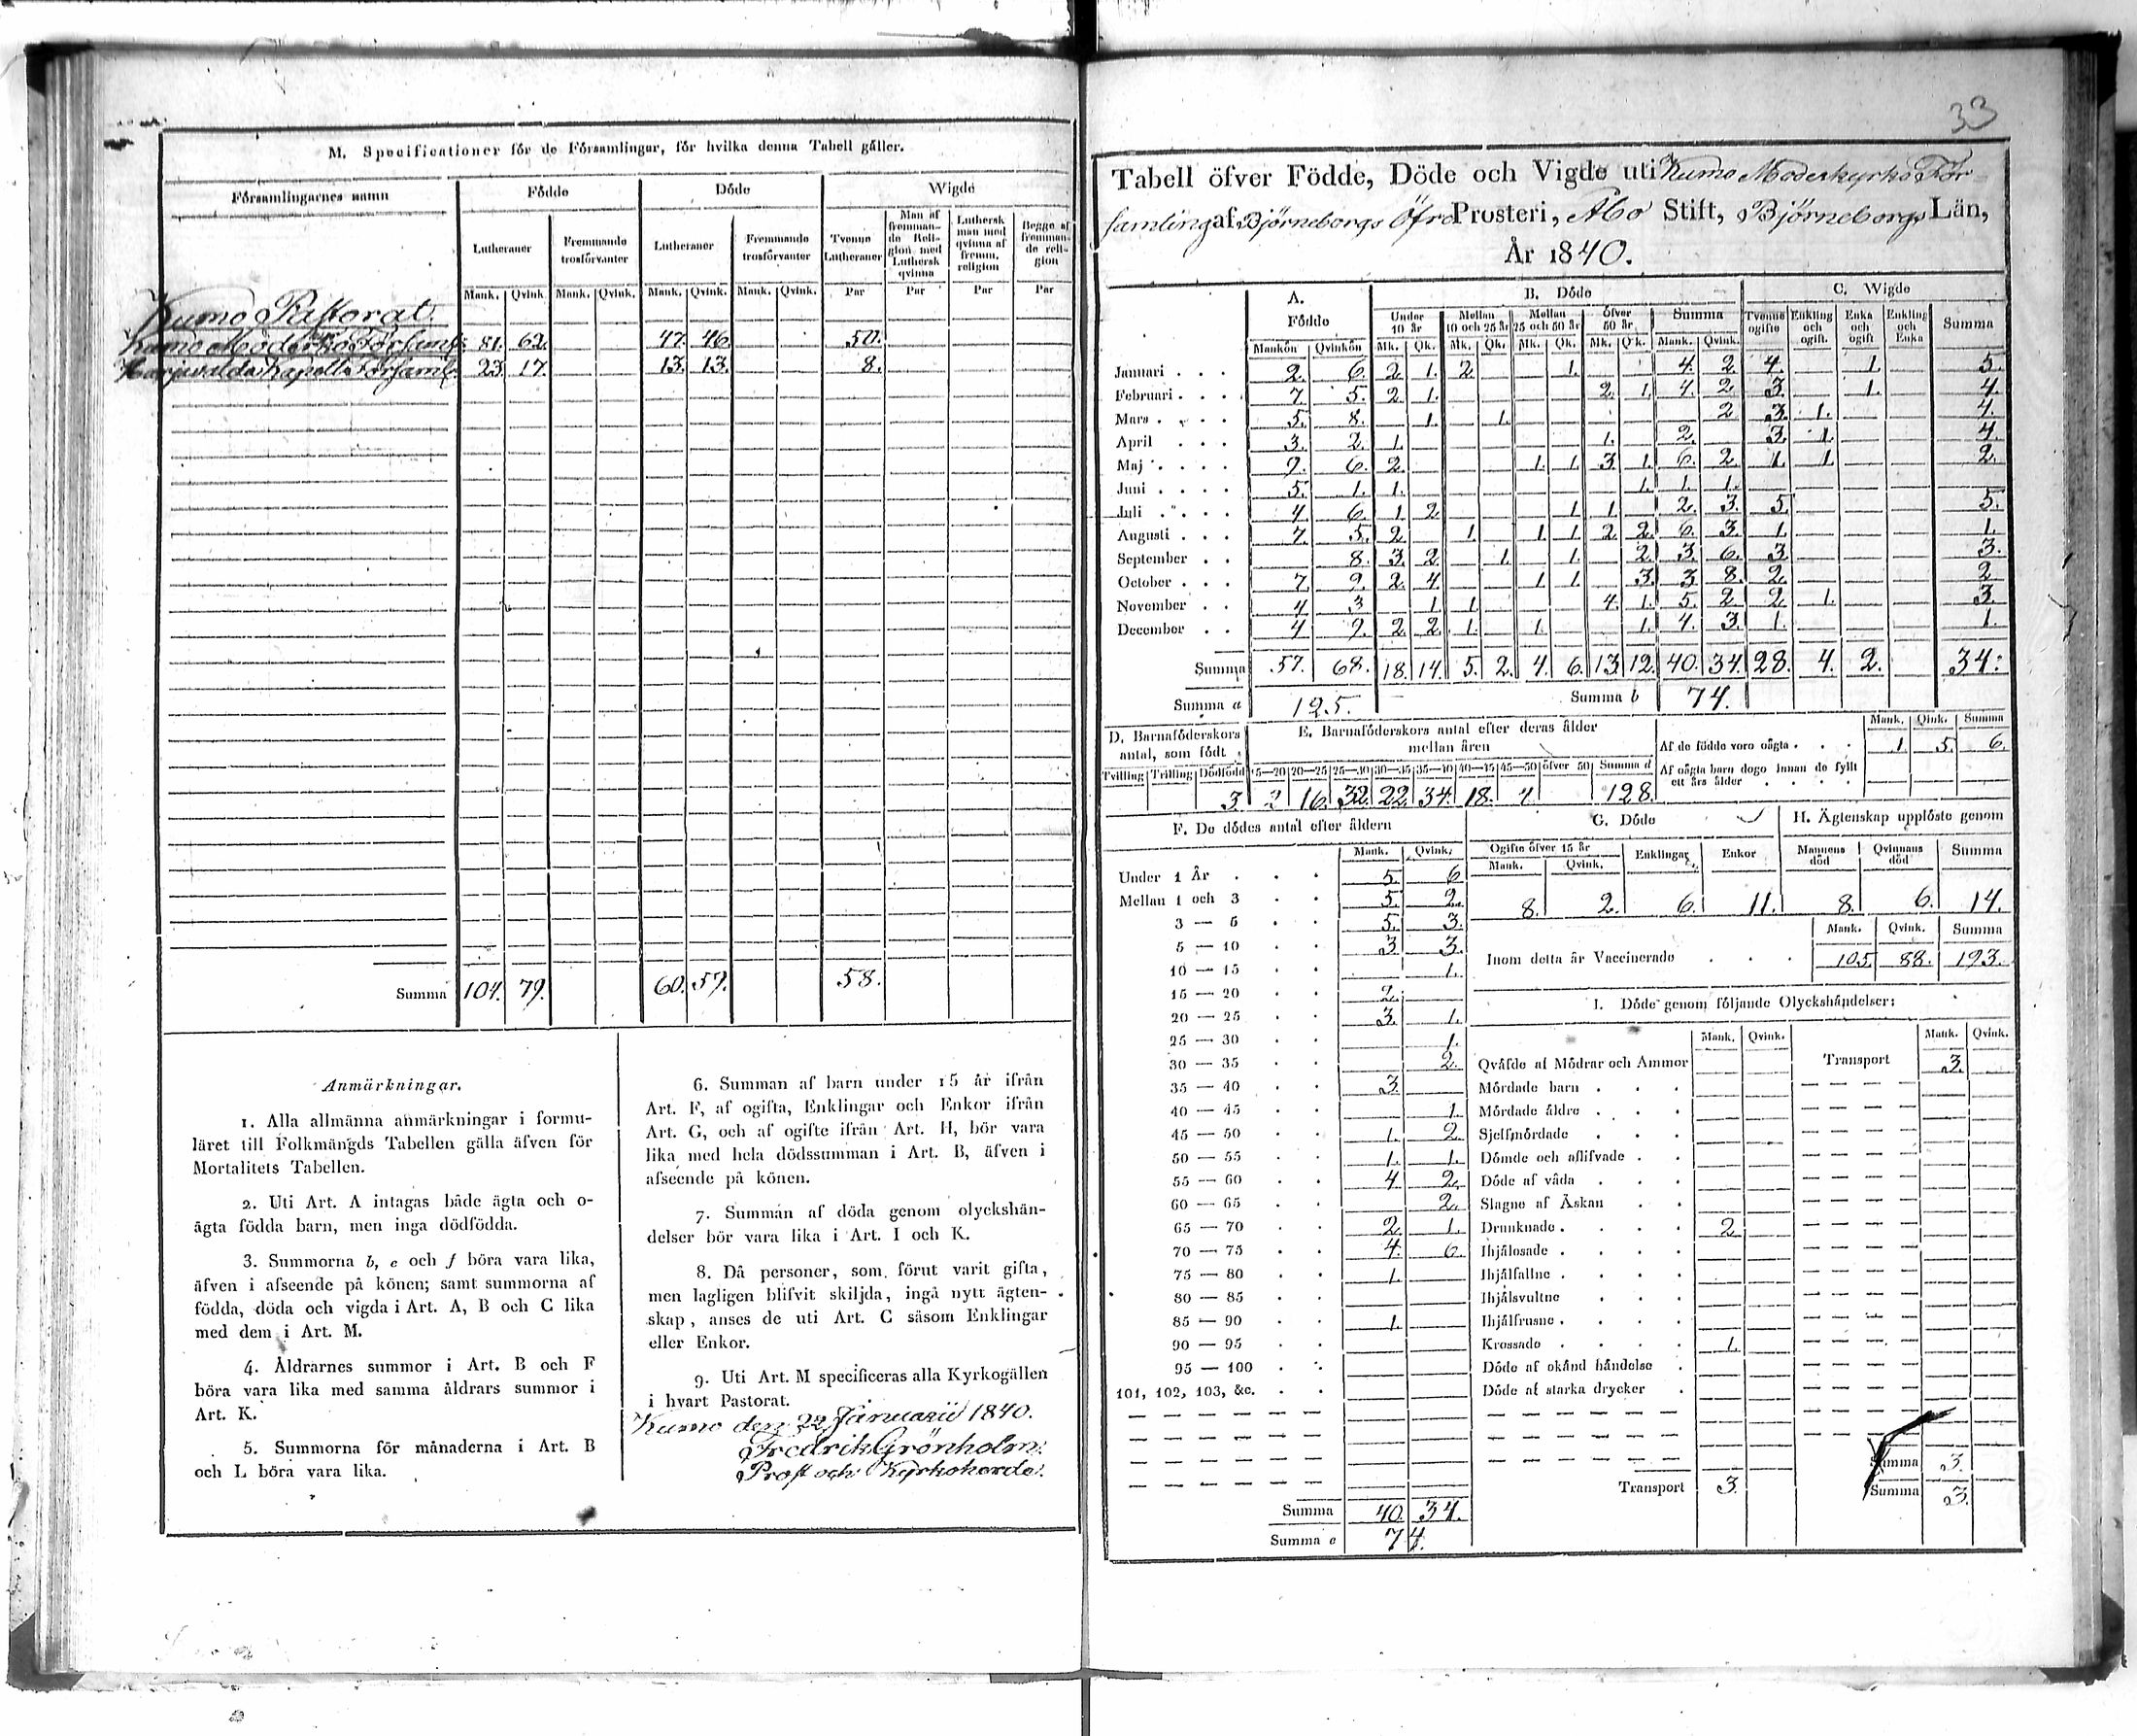 M. Specificationer för de Församlingar, för hvilka denna Tabell gäller.
Församlingarnes namn Födde Döde Wigde
Lutheraner Fremmande trosförvanter Lutheraner Fremmande trosförvanter Tvenne Lutheraner Man af fremmande Religion med Luthersk qvinna Luthersk man med qvinna af fremm. religion Begge af fremmande religion
Mank. Qvink. Mank. Qvink. Mank. Qvink. Mank. Qvink. Par Par Par Par
Kumo Pastorat.
Kumo Moderkyrko Församl: 81. 62. 47. 46. 50.
Harjavalda Kapells Församl: 23. 17. 13. 13. 8.
Summa 104. 79. 60. 59. 58.
Anmärkningar.
1. Alla allmänna anmärkningar i formu-
läret till Folkmängds Tabellen gälla äfven för
Mortalitets Tabellen.
2. Uti Art. A intagas både ägta och o-
ägta födda barn, men inga dödfödda.
3. Summorna b, e och f böra vara lika,
äfven i afseende på könen; samt summorna af
födda, döda och vigda i Art. A, B och C lika
med dem i Art. M.
4. Åldrarnes summor i Art. B och F
böra vara lika med samma åldrars summor i
Art. K.
5. Summorna för månaderna i Art. B
och L böra vara lika.
6. Summan af barn under 15 år ifrån
Art. F, af ogifta, Enklingar och Enkor ifrån
Art. G, och af ogifte ifrån Art. H, bör vara
lika med hela dödssumman i Art. B, äfven i
afseende på könen.
7. Summan af döda genom olyckshän-
delser bör vara lika i Art. I och K.
8. Då personer, som förut varit gifta,
men lagligen blifvit skiljda, ingå nytt ägten-
skap, anses de uti Art. C såsom Enklingar
eller Enkor.
9. Uti Art. M specificeras alla Kyrkogällen
i hvart Pastorat.
Kumo den 22 Januarii 1840.
Fredrik Grönholm.
Prost och Kyrkoherde.
33
Tabell öfver Födde, Döde och Vigde uti Kumo Moderkyrko För-
samling af Björneborgs Öfre Prosteri, Åbo Stift, Björneborgs Län,
År 1840.
A. Födde B. Döde C. Wigde
Under 10 år Mellan 10 och 25 år Mellan 25 och 50 år Öfver 50 år Summa Tvenne ogifte Enkling och ogift. Enka och ogift Enkling och Enka Summa
Mankön Qvinkön Mk. Qk. Mk. Qk. Mk. Qk. Mk. Qk. Mank. Qvink.
Januari 2. 6. 2. 1. 2. 1. 4. 2. 4. 1. 5.
Februari 7. 5. 2. 1. 2. 1. 4. 2. 3. 1. 4.
Mars 5. 8. 1. 1. 2 3. 1. 4.
April 3. 2. 1. 1. 2. 3. 1. 4.
Maj 9. 6. 2. 1. 1. 3. 1. 6. 2. 1. 1. 2.
Juni 5. 1. 1. 1. 1. 1.
Juli 4. 6. 1. 2. 1. 1. 2. 3. 5. 5.
Augusti 7. 5. 2. 1. 1. 1. 2. 2. 6. 3. 1. 1.
September 8. 3. 2. 1. 1. 2. 3. 6. 3. 3.
October 7. 9. 2. 4. 1. 1. 3. 3. 8. 2. 2
November 4 3 1. 1. 4. 1. 5. 2. 2. 1. 3.
December 4 9. 2. 2. 1. 1. 1. 4. 3. 1. 1.
Summa 57. 68. 18. 14. 5. 2. 4. 6. 13. 12. 40. 34. 28. 4. 2. 34.
Summa a 125. Summa b 74.
D. Barnaföderskors antal, som födt E. Barnaföderskors antal efter deras ålder mellan åren
Tvilling Trilling Dödfödd 15—20 20—25 25—30 30—35 35—40 40—45 45—50 öfver 50 Summa d
3. 2 16. 32. 22. 34. 18. 4 128.
Mank. Qvink. Summa
Af de födde voro oägta 1. 5. 6.
Af oägta barn dogo innan de fyllt
ett års ålder
F. De dödes antal efter åldern
Mank. Qvink.
Under 1 År 5. 6
Mellan 1 och 3 5. 2.
3 — 5 5. 3.
5 — 10 3 3.
10 — 15 1.
15 — 20 2.
20 — 25 3. 1.
25 — 30 1.
30 — 35 2.
35 — 40 3.
40 — 45 1.
45 — 50 1. 2
50 — 55 1. 1.
55 — 60 4 2.
60 — 65 2.
65 — 70 2. 1.
70 — 75 4. 6.
75 — 80 1.
80 — 85
85 — 90 1.
90 — 95
95 — 100
101, 102, 103, &c.
Summa 40. 34.
Summa e 74.
G. Döde H. Ägtenskap upplöste genom
Ogifte öfver 15 år Enklingar Enkor Mannens död Qvinnans död Summa
Mank. Qvink.
8. 2. 6. 11. 8. 6. 14.
Mank. Qvink. Summa
Inom detta år Vaccinerade 105. 88. 193.
I. Döde genom följande Olyckshändelser:
Mank. Qvink. Mank. Qvink.
Qväfde af Mödrar och Ammor Transport 3.
Mördade barn
Mördade äldre
Sjelfmördade
Dömde och aflifvade
Döde af våda
Slagne af Åskan
Drunknade 2.
Ihjälosade
Ihjälfallne
Ihjälsvultne
Ihjälfrusne
Krossade 1.
Döde af okänd händelse
Döde af starka drycker
Summa 3.
Transport 3. Summa 3.